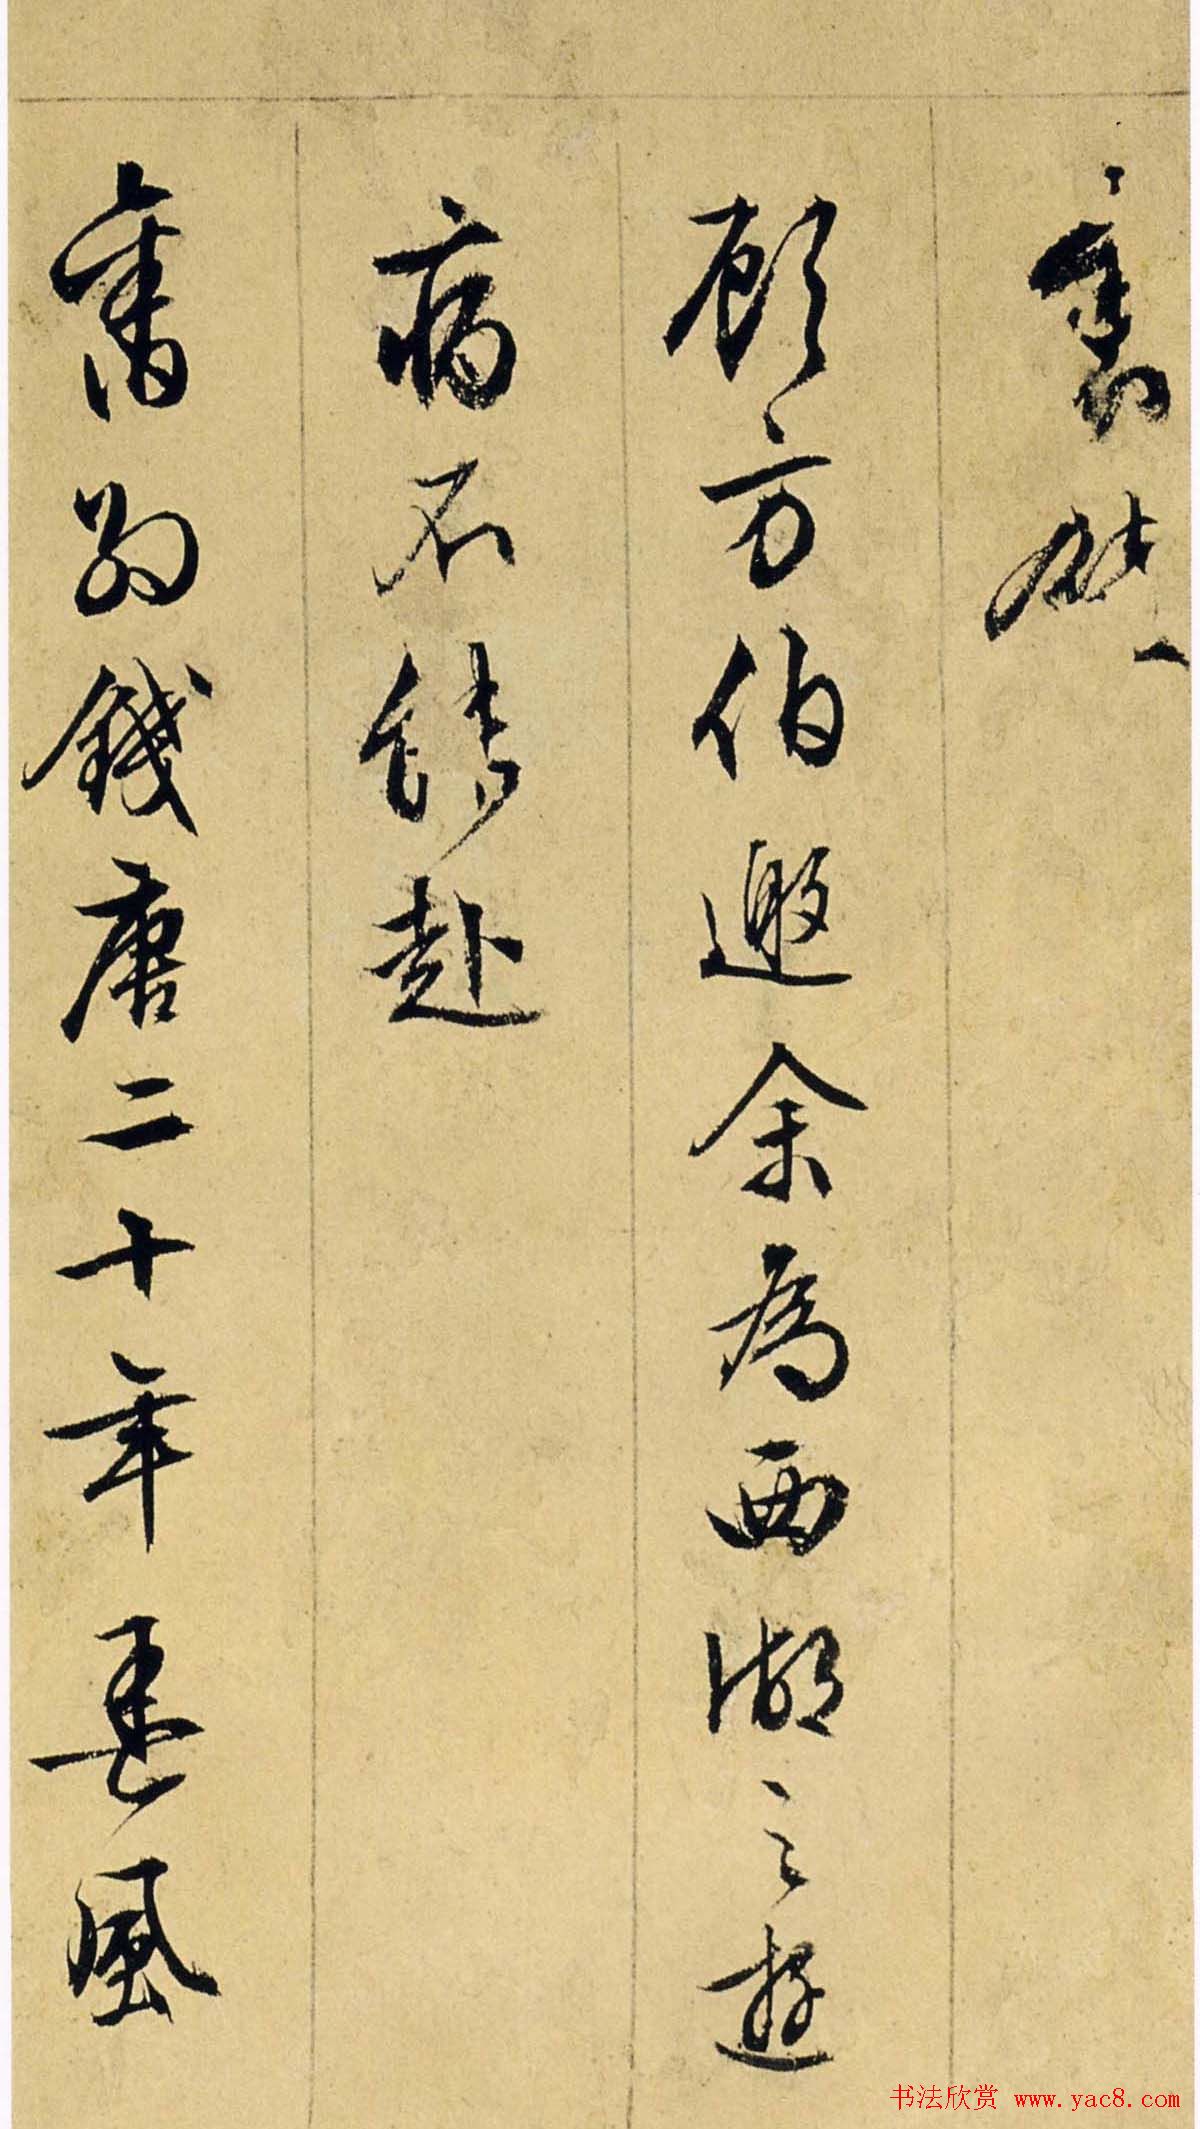 顧方伯邀余為西湖之遊
病不能赴
舊錢唐二十年春風
书法欣赏 www.yac8.com